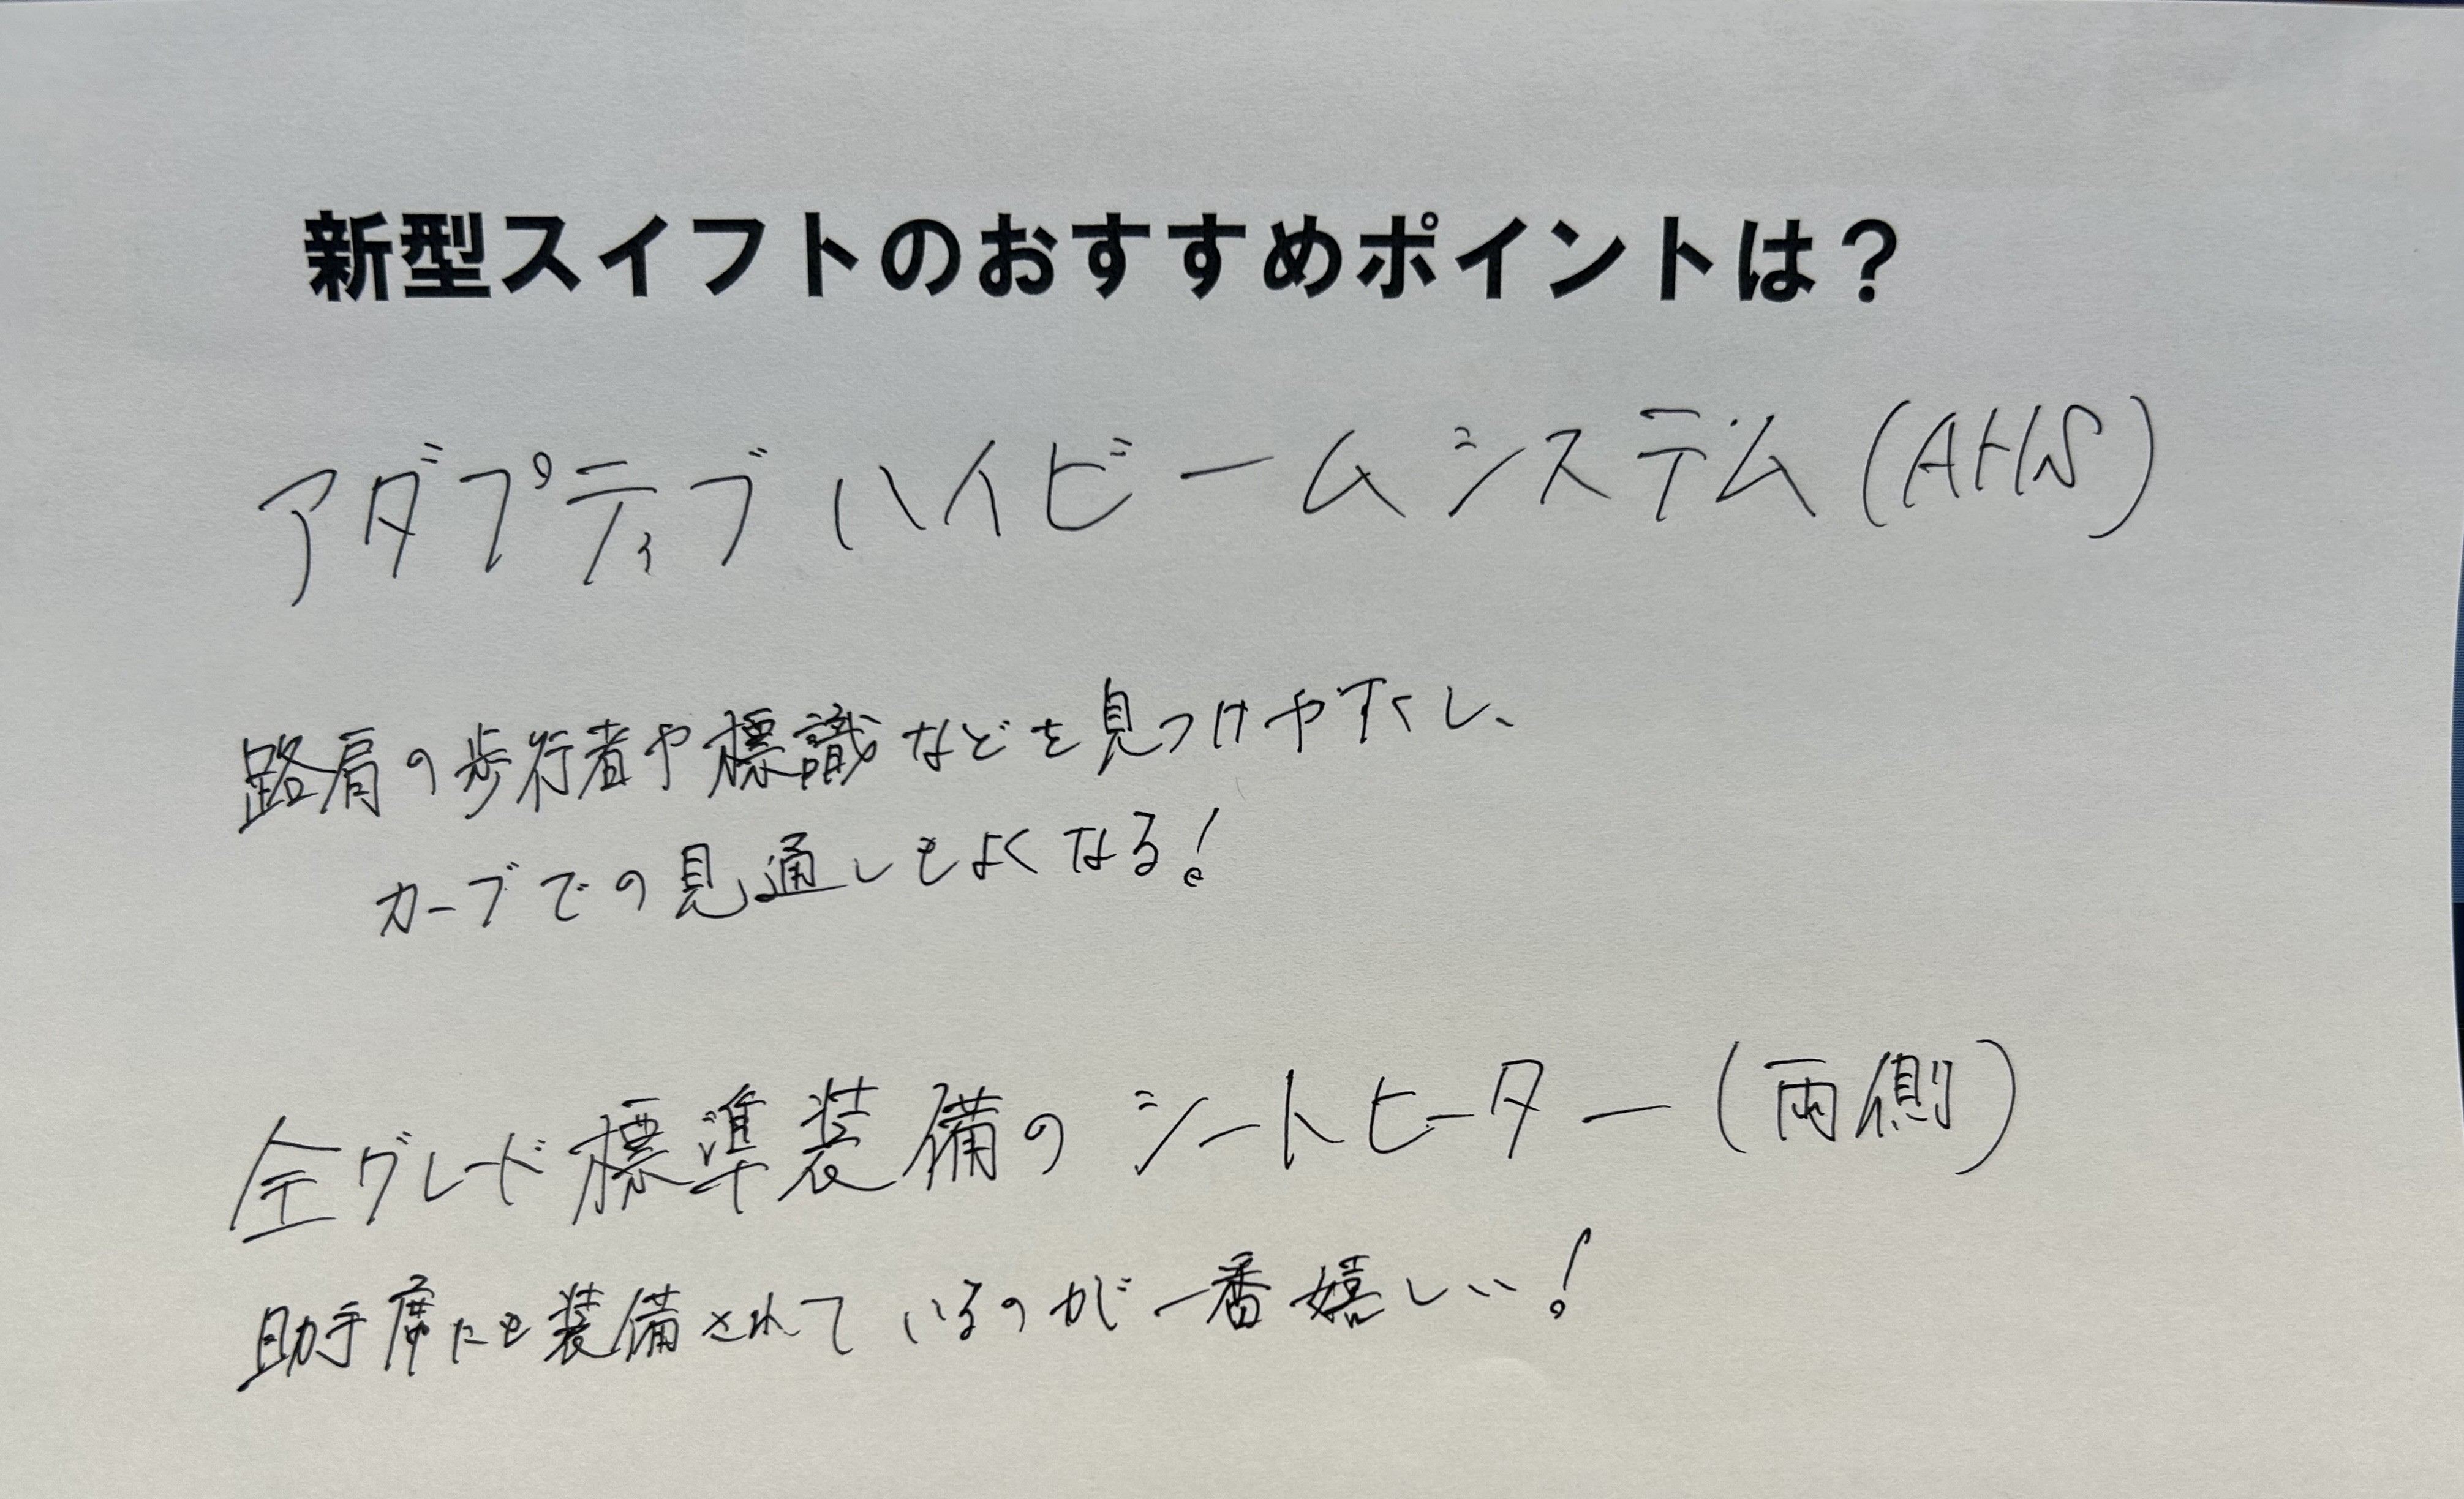 新型スイフトのおすすめポイントは？
アダプティブハイビームシステム(AHS)
路肩の歩行者や標識などを見つけやすくし、
カーブでの見通しもよくなる!
全グレード標準装備のシートヒーター(両側)
助手席にも装備されているのが一番嬉しい!